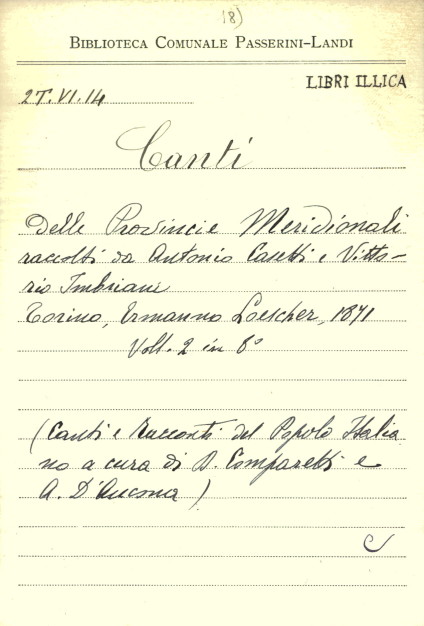 (8)
BIBLIOTECA COMUNALE PASSERINI-LANDI
LIBRI ILLICA
2T.VI.14
Canti
delle Provincie Meridionali
raccolti da Antonio Casetti e Vitto-
rio Imbriani
Torino, Ermanno Loescher, 1871
Voll. 2 in 8°
(Canti e Racconti del Popolo Italia
no a cura di D. Comparetti e
A. D'Ancona)
C